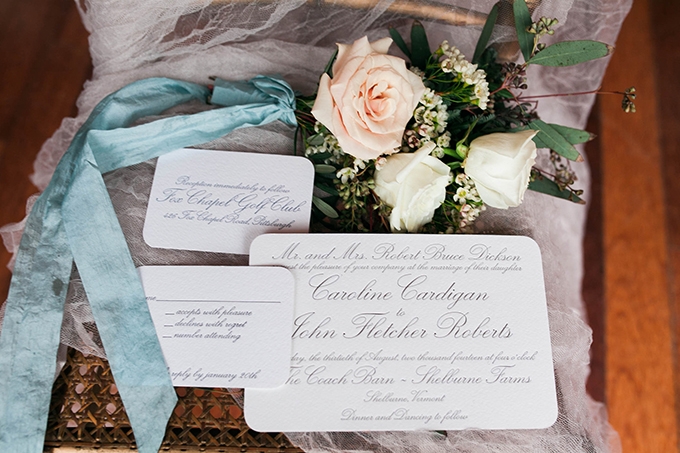 Reception immediately to follow
Fox Chapel Golf Club
426 Fox Chapel Road, Pittsburgh
Mr. and Mrs. Robert Bruce Dickson
the pleasure of your company at the marriage of their daughter
Caroline Cardigan
to
John Fletcher Roberts
day, the thirtieth of August, two thousand fourteen at four o'clock
The Coach Barn ~ Shelburne Farms
Shelburne, Vermont
Dinner and Dancing to follow
accepts with pleasure
declines with regret
number attending
reply by january 20th